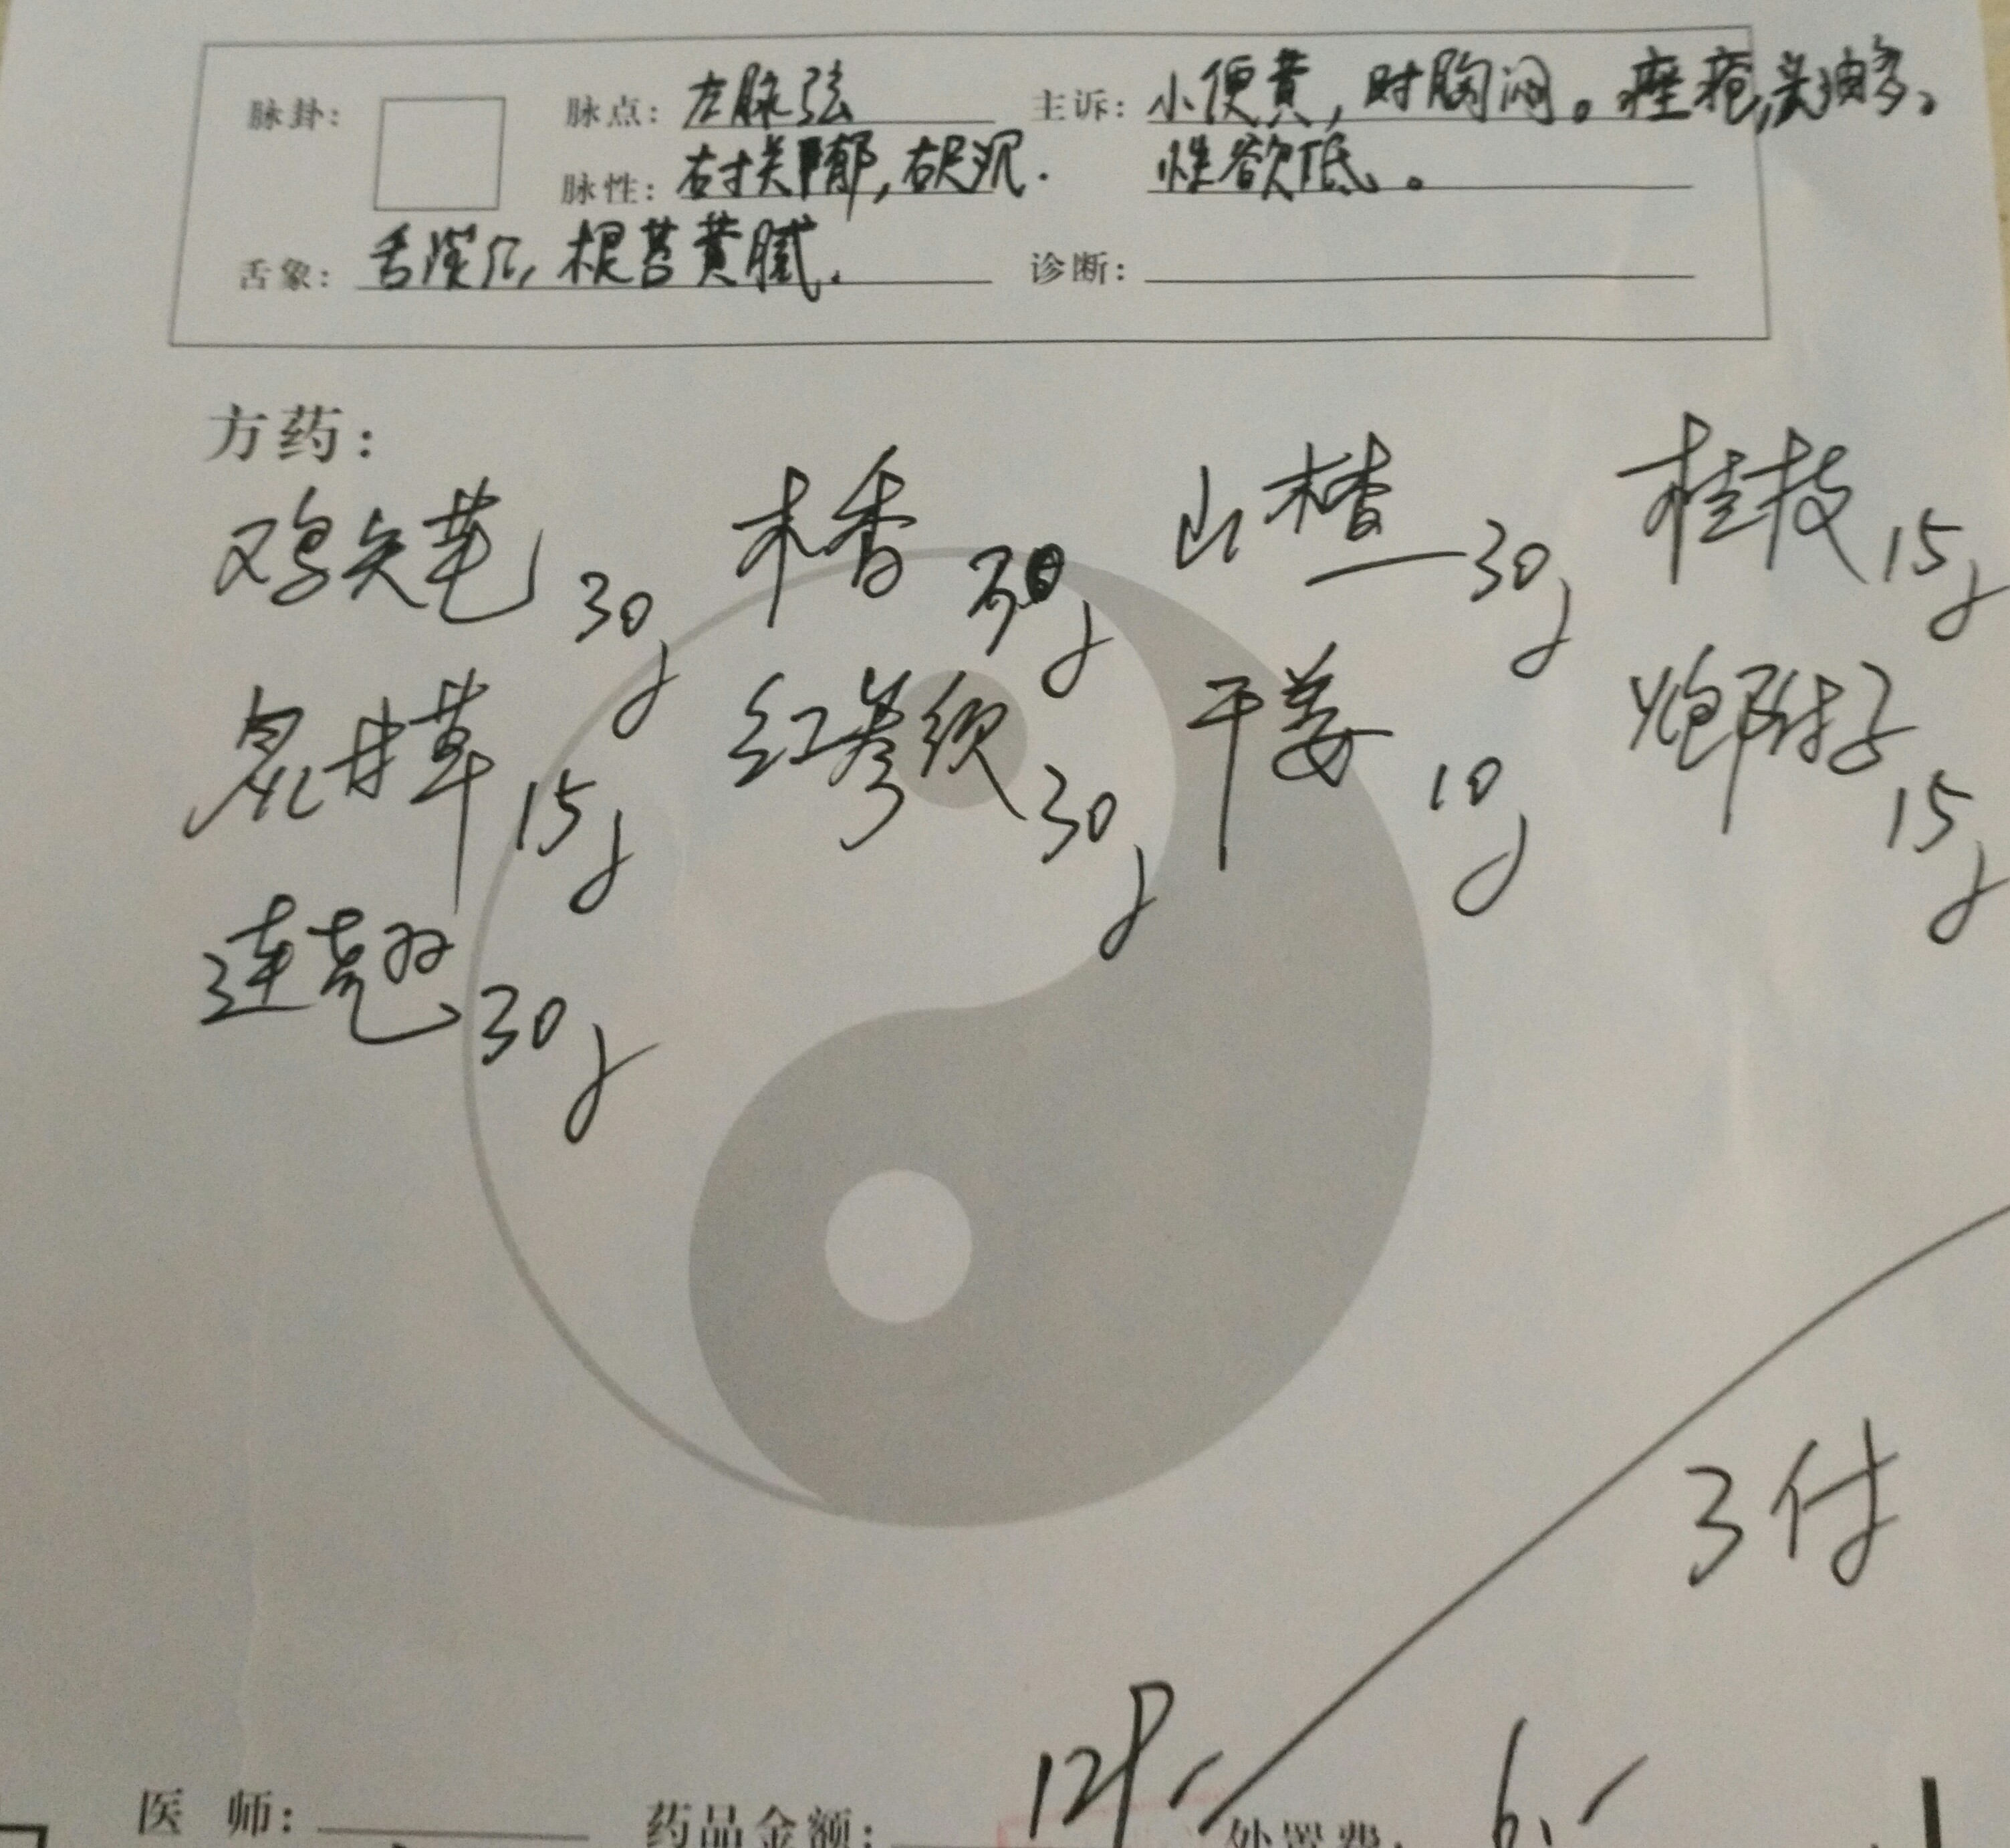 脉卦: 脉点: 左脉弦 主诉: 小便黄,时胸闷。痤疮,头油多。
脉性: 右寸关郁,右尺沉. 性欲低。
舌象: 舌淡红,根苔黄腻. 诊断:
方药:
鸡矢藤 30g 木香 30g 山楂 30g 桂枝 15g
炙甘草 15g 红参须 30g 干姜 10g 炮附子 15g
连翘 30g
3付
医 师: 药品金额: 处置费: 6.